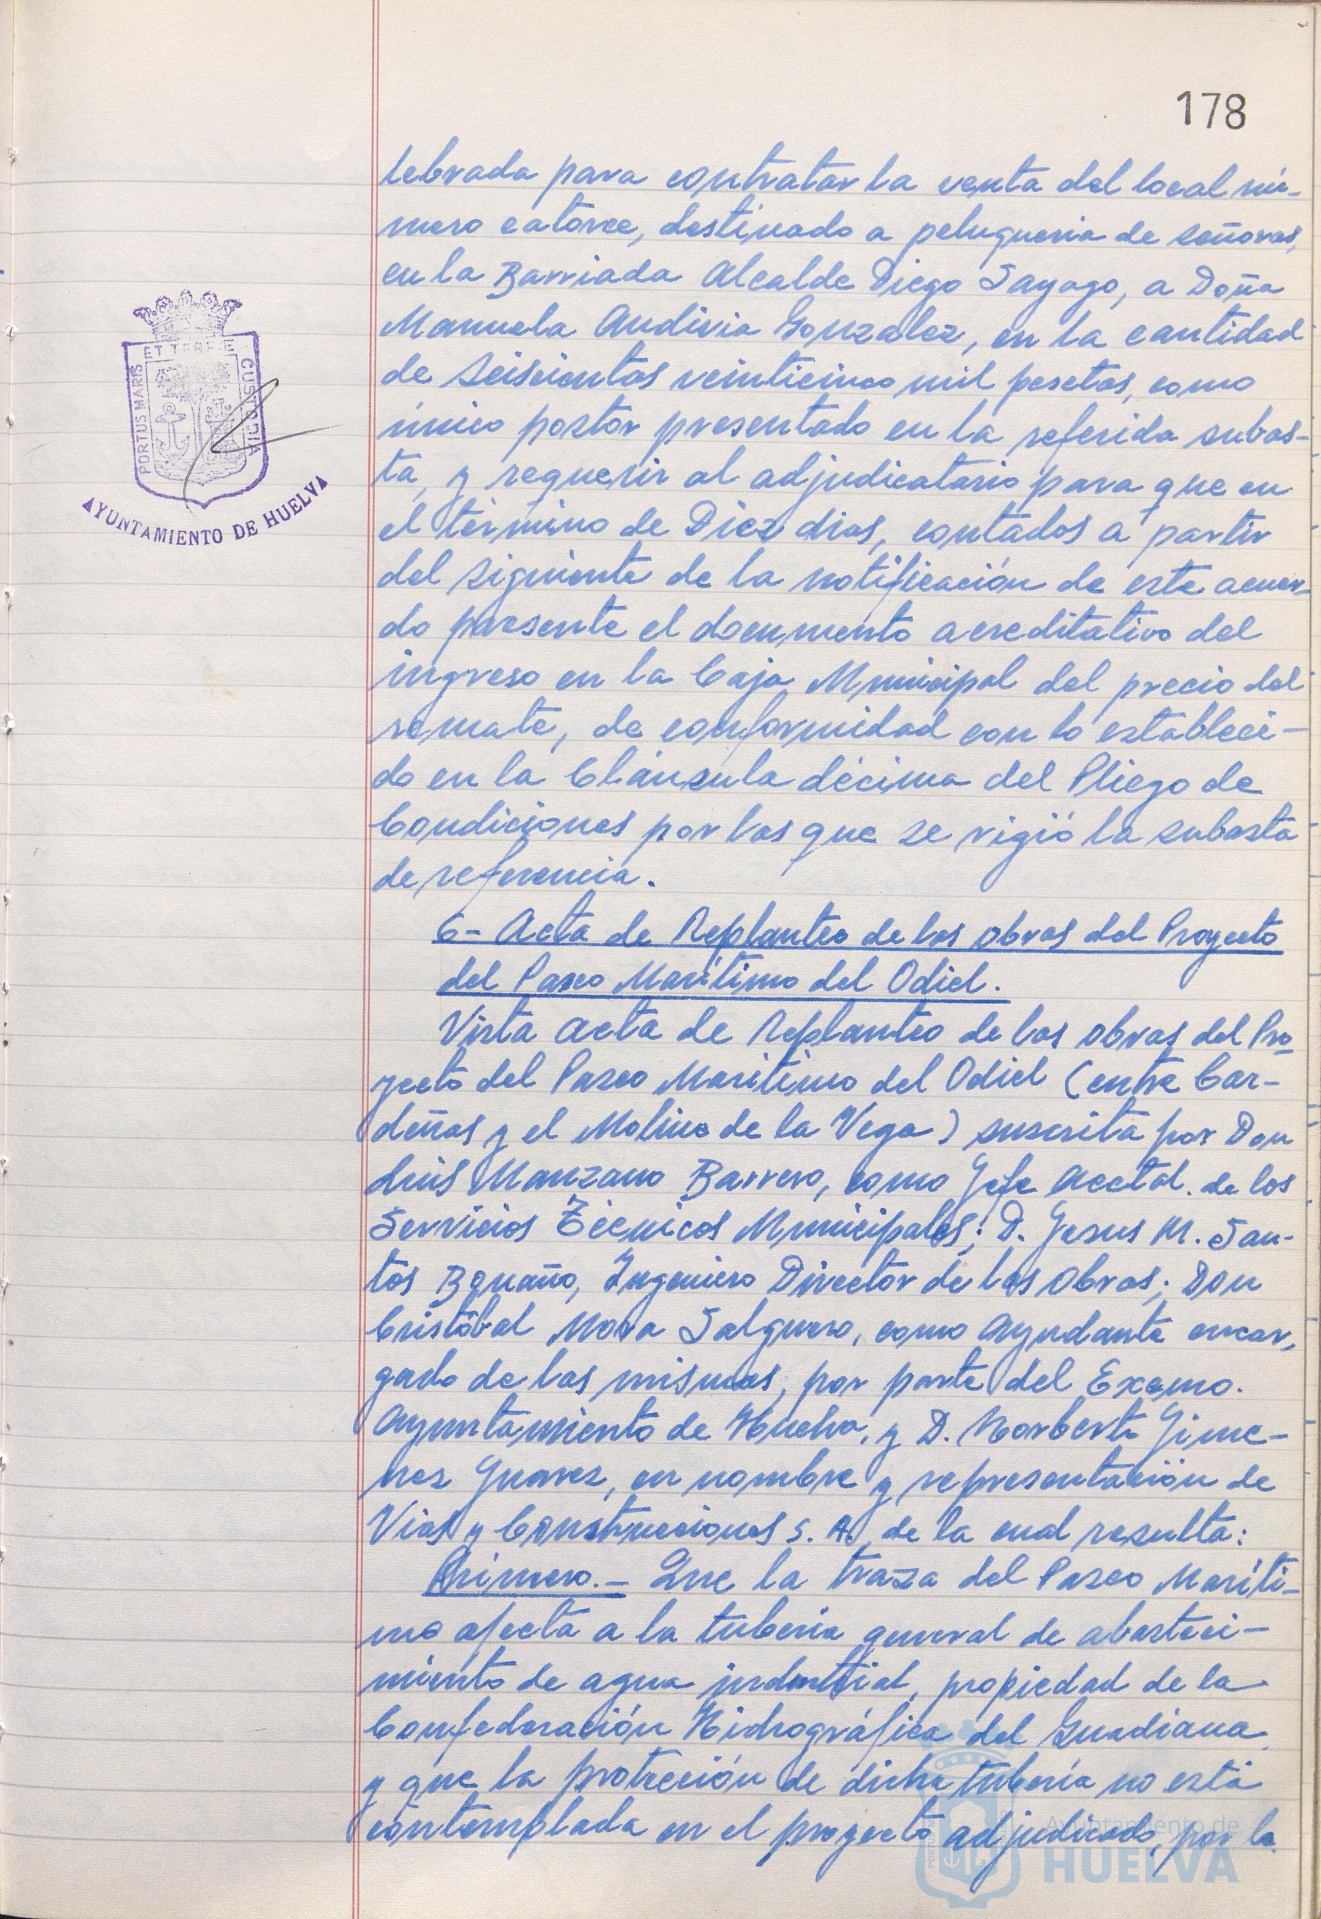 178
lebrada para contratar la venta del local nú-
mero catorce, destinado a peluqueria de señoras,
en la Barriada Alcalde Diego Sayago, a Doña
Manuela Audivia Gonzalez, en la cantidad
de seiscientas veinticinco mil pesetas, como
único postor presentado en la referida subas-
ta, y requerir al adjudicatario para que en
el término de Diez dias, contados a partir
del siguiente de la notificación de este acuer-
do presente el documento acreditativo del
ingreso en la Caja Municipal del precio del
remate, de conformidad con lo estableci-
do en la Cláusula décima del Pliego de
Condiciones por las que se rigió la subasta
de referencia.
6- Acta de Replanteo de las obras del Proyecto
del Paseo Marítimo del Odiel.
Vista acta de Replanteo de las obras del Pro-
yecto del Paseo Marítimo del Odiel (entre Car-
deñas y el Molino de la Vega) suscrita por Don
Luis Manzano Barrero, como Jefe acctal. de los
Servicios Técnicos Municipales; D. Jesus M. San-
tos Bonaño, Ingeniero Director de las obras; Don
Cristóbal Mora Salguero, como ayudante encar-
gado de las mismas, por parte del Excmo.
Ayuntamiento de Huelva, y D. Norberto Jime-
nez Juarez, en nombre y representación de
Vias y Construcciones S. A. de la cual resulta:
Primero.- Que la traza del Paseo Maríti-
mo afecta a la tubería general de abasteci-
miento de agua industrial, propiedad de la
Confederación Hidrográfica del Guadiana,
y que la protección de dicha tubería no está
contemplada en el proyecto adjudicado, por la
PORTUS MARIS
ET TERRAE
CUSTODIA
AYUNTAMIENTO DE HUELVA
Ayuntamiento de
HUELVA